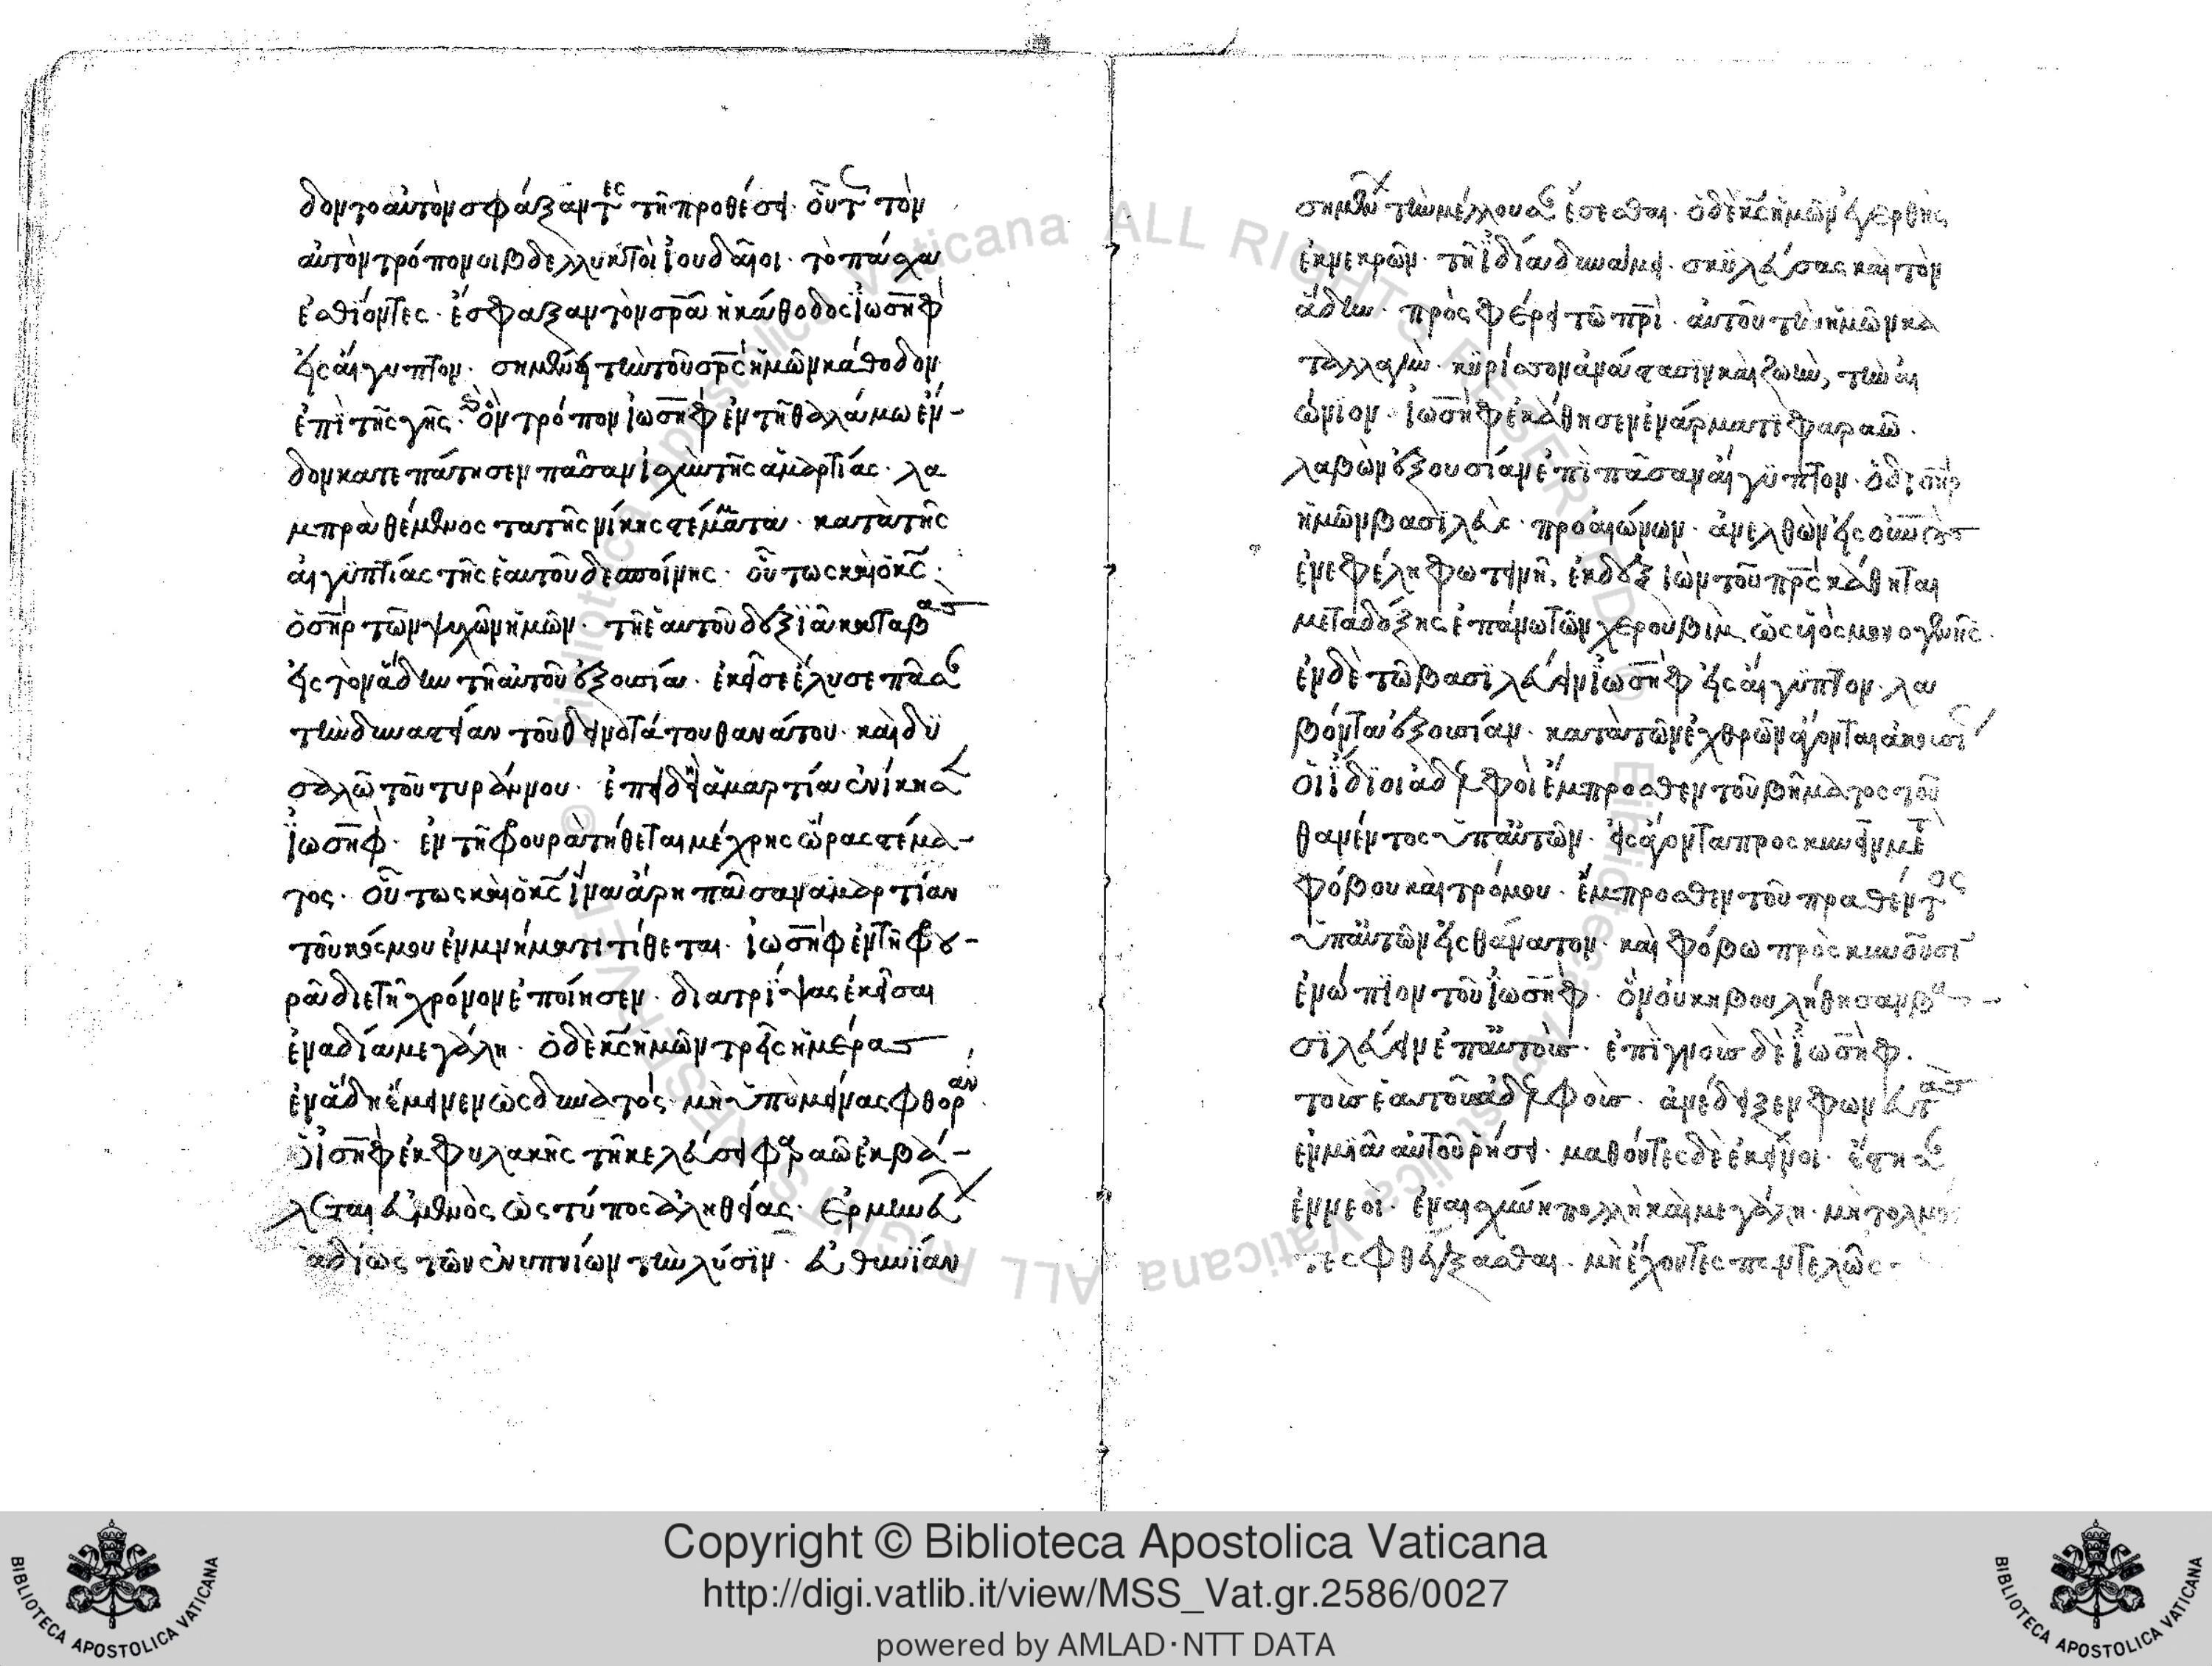 δοντο αὐτὸν σφάξαντες τῆ προθέσει· οὕτ τὸν
αὐτὸν τρόπον οι βδελλυκτοὶ ἰουδαῖοι· τὸ πάσχα
ἐσθΐοντες· ἔσφαξαν τὸν σρᾱ ἡ κάθοδος ϊωσὴφ
εἰς αἴγυπτον· σημαίνει τὴν τοῦ σρς ἡμῶν κάθοδον
ἐπὶ τῆς γῆς· ὃν τρόπον ἰωσὴφ ἐν τῆ θαλάμω ἔν-
δον κατεπάτησεν πᾶσαν ἰσχὺν τῆς ἁμαρτίας· λα
μπρὰ θέμενος τα τῆς νίκης στέμματα· κατὰ τῆς
αἰγϋπτίας τῆς ἑαυτοῦ δεσποίνης· οὕτως καὶ ὁ κς·
ὁ σηρ τῶν ψυχῶν ἡμῶν· τῆ ἑαυτοῦ δεξϊᾶ καταβὰς
εἰς τὸν ἅδην τῆ αὐτοῦ ἐξουσία· ἐκεῖσε ἔλυσε πᾶσαν
τὴν δυναστείαν τοῦ δεινοτάτου θανάτου· καὶ δϋ
σαλῶ τοῦ τυράννου· ἐπειδὴ ἁμαρτίαν ἐνίκησεν
ϊωσὴφ· ἐν τῆ φουρὰ τήθεται μέχρης ὥρας στέμα-
τος· οὕτως καὶ ὁ κς ἵνα ἄρη πᾶσαν ἁμαρτίαν
τοῦ κόσμου ἐν μνήματι τίθεται· ἰωσὴφ ἐν τῆ φου-
ρᾶ διετῆ χρόνον ἐποίησεν· διατρίψας ἐκεῖσαι
ἐν αδία μεγάλη· ὁ δὲ κς ἡμῶν τρεῖς ἡμέρας
ἐν ἅδη ἔμεινεν ὡς δυνατός· μὴ ὑπομείνας φθοράν·
ὁ ἰσὴφ ἐκ φυλακῆς τῆ κελεύσει φαραῶ ἐκβά-
λεται ὡς τύπος ἀληθείας· ἑρμηνεύων
αδίως τῶν ἐνυπνίων τὴν λύσϊν· εὐθηνίαν
σημαίνων τὴν μέλλουσαν ἔσεσθαι· ὁ δὲ κς ἡμῶν ἐγερθεὶς
ἐκ νεκρῶν· τῆ ϊδία δυνάμει· σκϋλεύσας καὶ τὸν
ἅδην· πρὸς φέρει τῶ πρὶ· αὐτοῦ τὴν ἡμῶν κα
ταλλαγὴν· κϋρίστον ἀνάστασϊν καὶ ζωὴν, τὴν αι
ώνϊον· ἰωσὴφ ἐκάθησεν ἐν ἅρματϊ φαραῶ·
λαβὼν ἐξουσίαν ἐπὶ πᾶσαν αἴγϋπτον· ὁ δὲ σηρ
ἡμῶν βασϊλεὺς· προαιώνων· ἀνελθὼν εἰς οὐνοὺς
ἐνεφέλη φωτεινῆ, ἐκ δεξιὼν τοῦ πρς κάθηται
μετα δόξης ἐπάνω τῶν χεροὺβὶμ ὡς υἱὸς μονογενῆς·
ἐν δὲ τῶ βασϊλεύειν ϊωσὴφ εἰς αἴγϋπτον· λα
βόντα ἐξουσίαν· κατὰ τῶν ἐχθρῶν ἄγονται ἄκουσι
οἱ ἴδϊοι ἀδελφοὶ ἔμπροσθεν τοῦ βήματος τοῦ
θανέντος ὑπ αὐτῶν· εἰσάγοντα προς κυνεῖν μετ
φόβου καὶ τρόμου· ἔμπροσθεν τοῦ πραθέντος
ὑπ αὐτῶν εἰς θάνατον· καὶ φόβω πρὸς κυνοῦσι
ἐνώπϊον τοῦ ἰωσὴφ· ὃν οὐκ ηβουλήθησαν βα
σϊλεύειν ἐπ αὐτοὺς· ἐπϊγνοὺς δὲ ἰωσὴφ·
τοὺς ἑαυτοῦ ἀδελφοὺς· ἀνέδειξεν
ἐν μϊᾶ αὐτοῦ ρήσει· μαθόντες δὲ ἐκεῖνοι· ἔστησαν
ἔννεοὶ· ἐν αισχύνη πολλὴ καὶ μεγάλη· μὴ τολμῶν
τες φθέγξασθαι· μὴ ἔχοντες παντελῶς-
Copyright © Biblioteca Apostolica Vaticana
http://digi.vatlib.it/view/MSS_Vat.gr.2586/0027
powered by AMLAD·NTT DATA